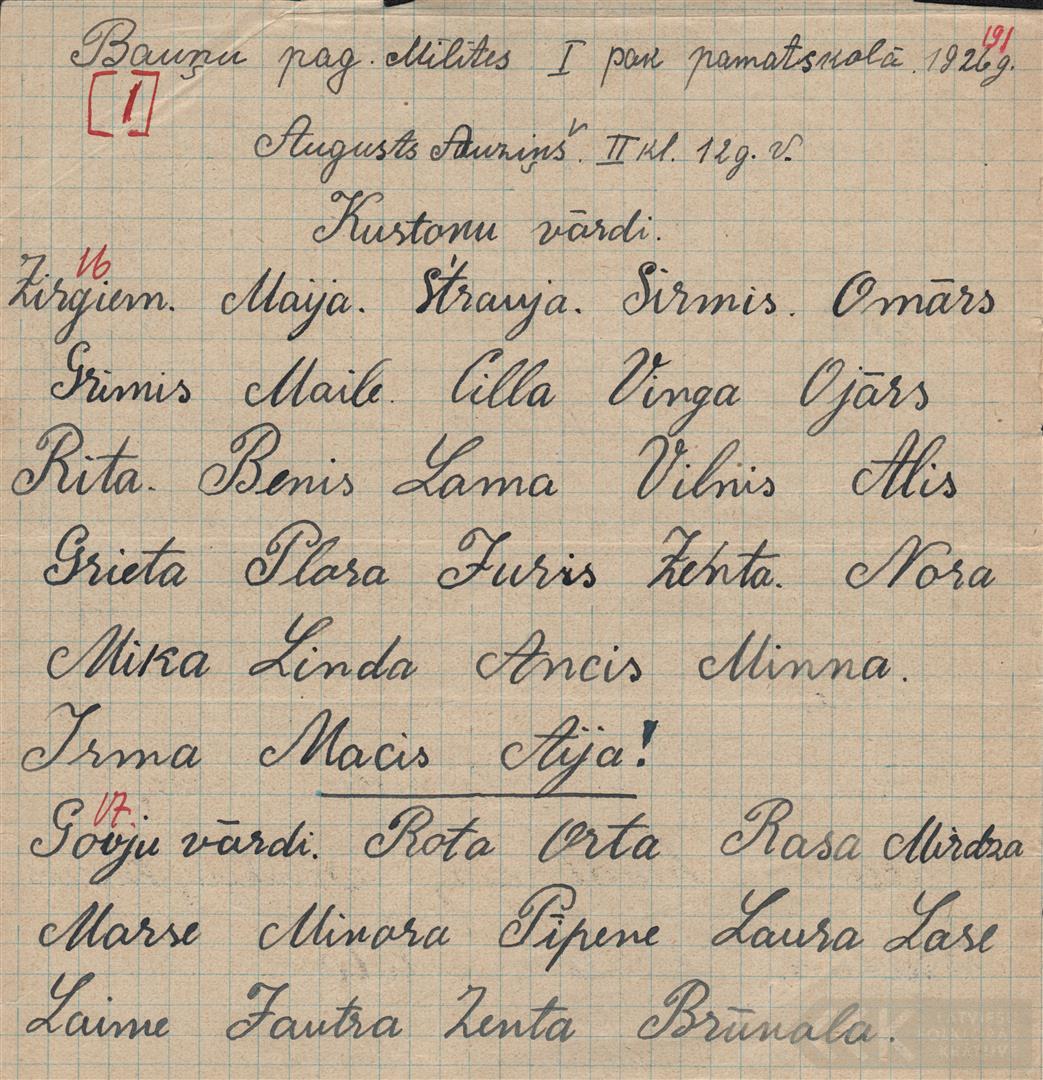 191
Bauņu pag. Mīlītes I pak pamatskolā. 1926g.
[1]
Augusts Auziņš. II kl. 12g. v.
Kustoņu vārdi.
16
Zirgiem. Maija. Strauja. Sirmis. Omārs
Grimis Maile. Cilla Vinga Ojārs
Rita. Benis Lama Vilnis Alis
Grieta Plora Juris Zenta. Nora
Mika Linda Ancis Minna.
Irma Macis Aija!
17.
Govju vārdi. Rota Orta Rasa Mirdza
Marse Minora Pīpene Laura Lase
Laime Jautra Zenta Brūnala.